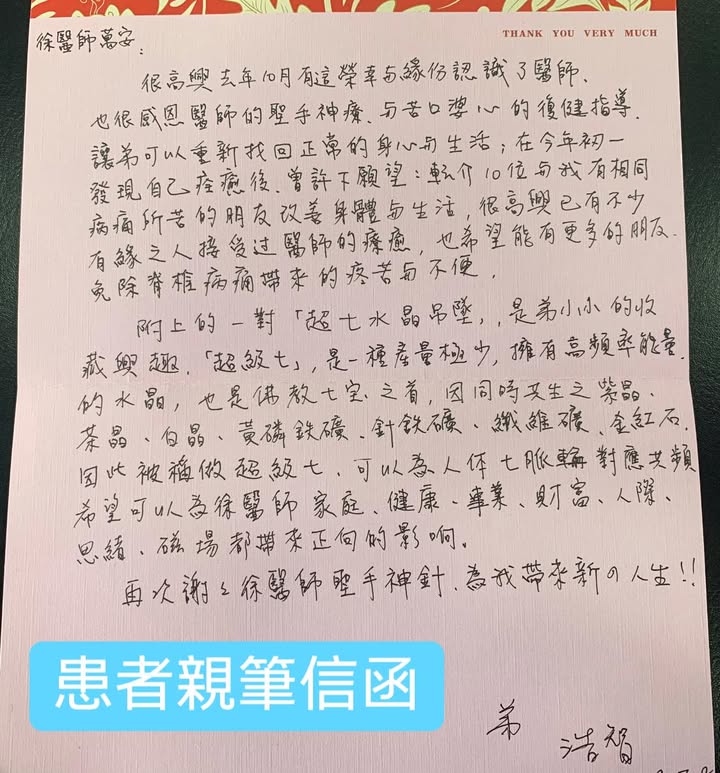 THANK YOU VERY MUCH
徐醫師萬安:
很高興去年10月有這榮幸与緣份認識了醫師.
也很感恩醫師的聖手神療.与苦口婆心的復健指導.
讓弟可以重新找回正常的身心与生活;在今年初一
發現自己痊癒後、曾許下願望:轉介10位与我有相同
病痛所苦的朋友改善身體与生活,很高興已有不少
有緣之人接受过醫師的療癒,也希望能有更多的朋友.
免除脊椎病痛帶來的疼苦与不便.
附上的一對「超七水晶吊墜」,是弟小小的收
藏興趣.「超級七」,是一種產量極少,擁有高頻率能量.
的水晶,也是佛教七宝之首,因同時共生之紫晶、
茶晶、白晶、黃磷鉄礦、針鉄礦、纖維礦、金紅石.
因此被稱做超級七.可以為人体七脈輪對應共頻
希望可以為徐醫師家庭、健康、事業、財富、人際、
思緒、磁場都帶來正向的影响。
再次謝々徐醫師聖手神針.為我帶來新の人生!!
患者親筆信函
弟 浩智